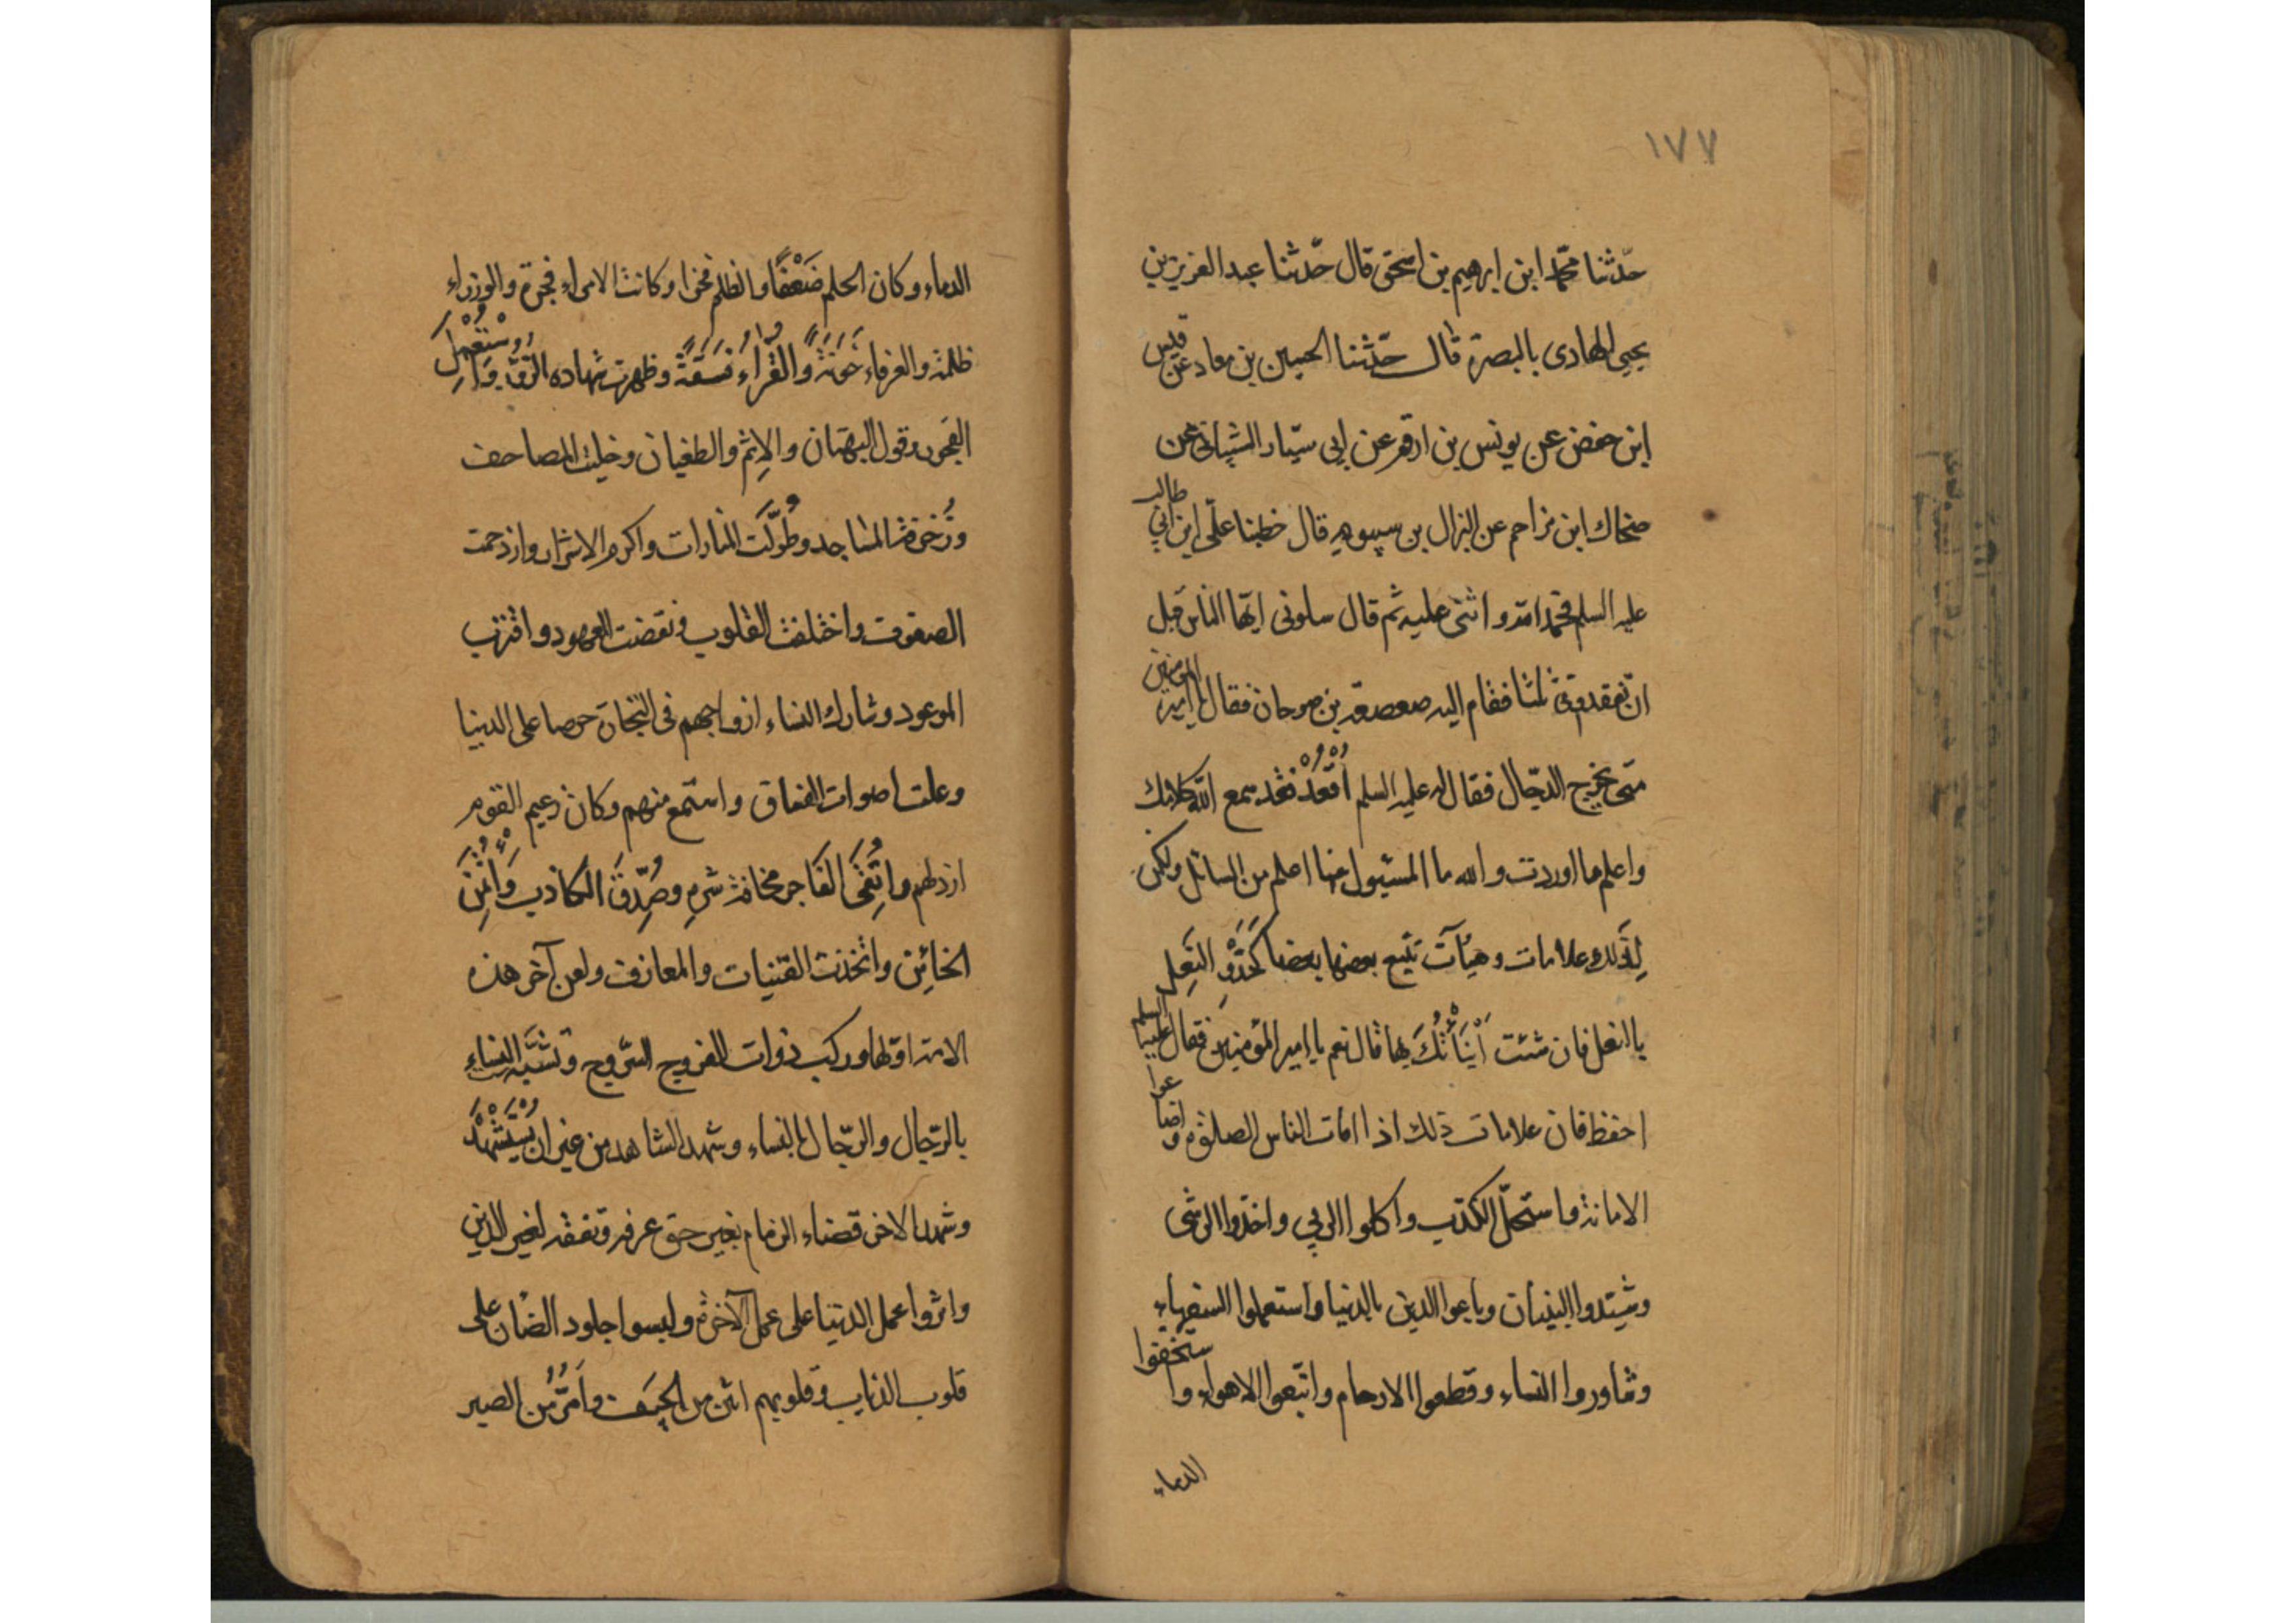 ١٧٧
حدّثنا محمّد ابن ابرهيم بن اسحق قال حدّثنا عبد العزيز بن
يحيى الهادى بالبصرة قال حدّثنا الحسين بن معاد عن قيس
ابن حفض عن يونس بن ارقم عن ابى سيّار الشيبانى عن
ضحاك ابن مزاحم عن النزال بن سيبويه قال خطبنا علىّ ابن ابى طالب
عليه السلم فحمد الله و اثنى عليه ثم قال سلونى ايّها الناس قبل
ان تفقدونى ثلثا فقام اليه صعصعة بن صوحان فقال يا امير المؤمنين
متى يخرج الدجّال فقال له عليه السلم اُقْعُدْ فقد سمع الله كلامك
واعلم ما اوردت والله ما المسئول منها اعلم من السائل ولكن
لِذلك علامات وهيآت تتبع بعضها بعضا كَحَذْوِ النّعل
باالنعل فان شئت اَنْبَأْتُكَ بها قال نعم يا امير المؤمنين فقال عليه السلم
احفظ فان علامات ذلك اذا امات الناس الصلوة و اضاعوا
الامانة واستحلّ الكذب واكلوا الربى واخذوا الرشى
وشيّدوا البنيان وباعوا الدين بالدنيا واستعملوا السفهاء
وشاوروا النساء وقطعوا الارحام واتّبعوا الاهواء وا ستخفوا
الدماء
الدماء وكان الحلم ضَعْفًا والظلم فخرا وكانت الامراء فجرة والوزراء
ظلمة والعرفاء خَوَنَةً وَالقُرّاءُ فَسَقَةً وظهرت شهاده الزّور وَاُسْتُعْمِلَ
الفجور وقول البهتان والاِثم والطغيان وخليت المصاحف
وزُخرفت المساجد وطُوِّلَت المنارات واكرم الاشرار وازدحمت
الصفوف واختلفت القلوب ونقضت العهود واقترب
الموعود وشارك النساء ازواجهم فى التجارة حرصا على الدنيا
وعلت اصوات الفساق واستمع منهم وكان زعيم القوم
ارذلهم واتُّقَى الفَاجر مخافة شرهِ وصُدِّقَ الكاذب وَاُئْتُمِنَ
الخائِن واتّخذت القينات والمعازف ولعن آخر هذه
الامة اوّلها وركب ذوات الفروج السّروج وتَشَبَّه النساء
بالرّجال والرّجال بالنساء وشهد الشاهد من غير ان يُسْتَشْهَدَ
وشهد الاخر قضاء الزمام بغير حق عرفه وتفقه لغير الدين
واثروا عمل الدنيا على عمل الآخرة ولبسوا جلود الضأن على
قلوب الذئاب وقلوبهم انتن من الجيَف واَمَرُّ من الصبر